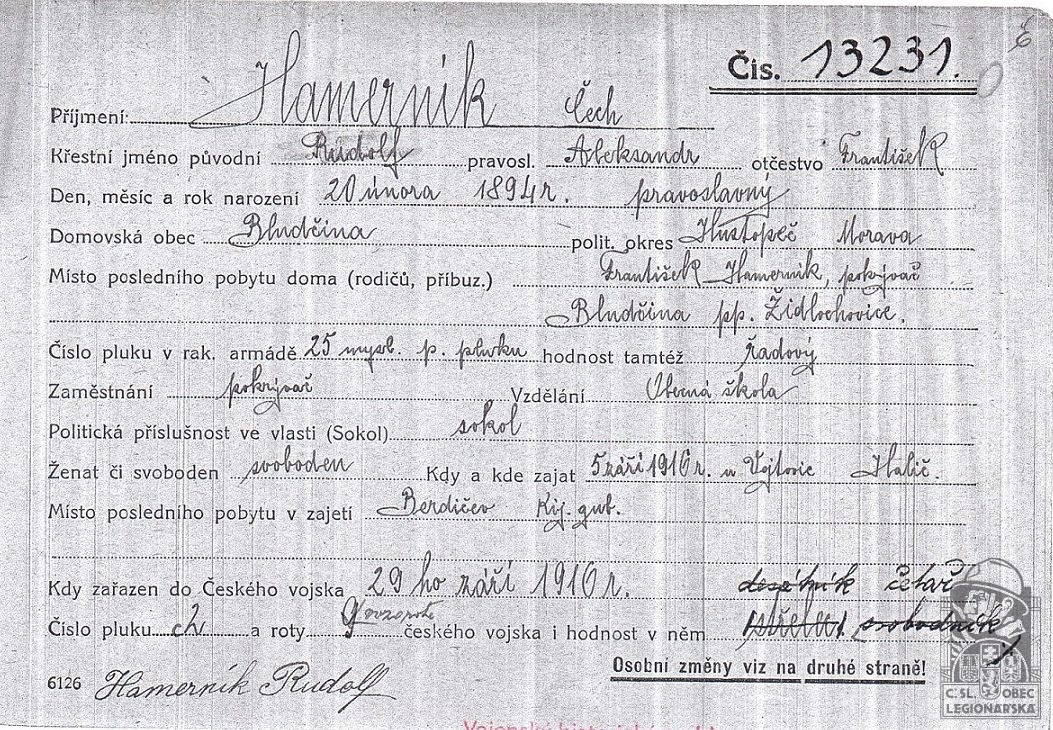 Čís. 13231.
Příjmení: Hamerník Čech
Křestní jméno původní Rudolf pravosl. Aleksandr otčestvo František
Den, měsíc a rok narození 20 února 1894 r. pravoslavný
Domovská obec Bludčina polit. okres Hustopeč Morava
Místo posledního pobytu doma (rodičů, příbuz.) František Hamerník, pokrývač
Bludčina pp. Židlochovice.
Číslo pluku v rak. armádě 25 mysl. p. plwku hodnost tamtéž Řadový
Zaměstnání pokrývač Vzdělání Obecná škola
Politická příslušnost ve vlasti (Sokol) sokol
Ženat či svoboden svoboden Kdy a kde zajat 5 září 1916 r. u Vojtovic Halič.
Místo posledního pobytu v zajetí Berdičev Kij. gub.
Kdy zařazen do Českého vojska 29 ho září 1916 r. desátník četař
Číslo pluku a roty 9 českého vojska i hodnost v něm svobodník
Osobní změny viz na druhé straně!
6126 Hamerník Rudolf
Č. SL. OBEC
LEGIONÁŘSKÁ